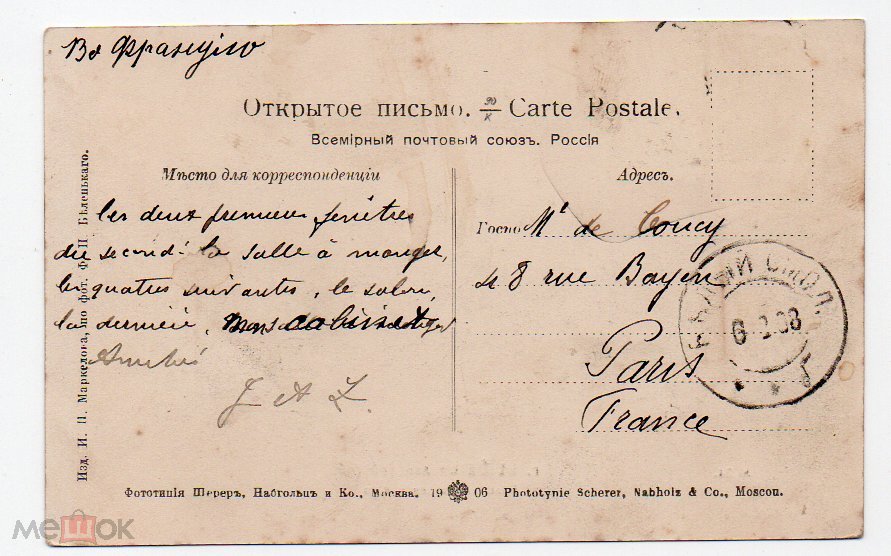 Во Францію
Открытое письмо. Carte Postale.
Всемірный почтовый союзъ. Россія
Мѣсто для корреспонденціи
Адресъ.
les deux premières fenêtres
du second: la salle à manger,
les quatres suivantes, le salon,
la dernière, mon cabinet
J A Z
Mr de Coucy
8 rue Bayen
Paris
France
БѢЛЫЙ СМОЛ.
6 08
Изд. И. П. Маркелова, по фот. Ф. П. Бѣленькаго.
Фототипія Шереръ, Набгольцъ и Ко., Москва. 19 06 Phototypie Scherer, Nabholz & Co., Moscou.
мешок